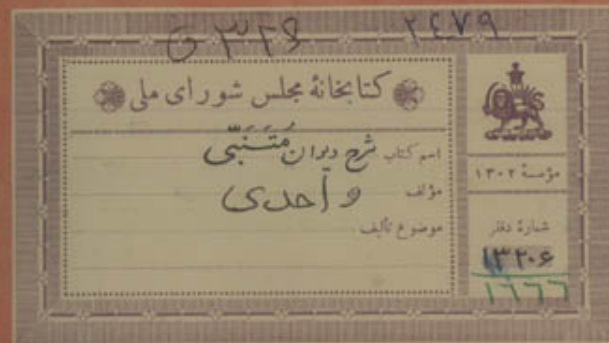 ۲۴۷۹
کتابخانهٔ مجلس شورای ملی
اسم کتاب شرح دیوان مُتَنَبّی
مؤلف واحدی
موضوع تألیف
مؤسسهٔ ۱۳۰۲
شمارهٔ دفتر
۱۳۲۰۶
۱۶۶۶